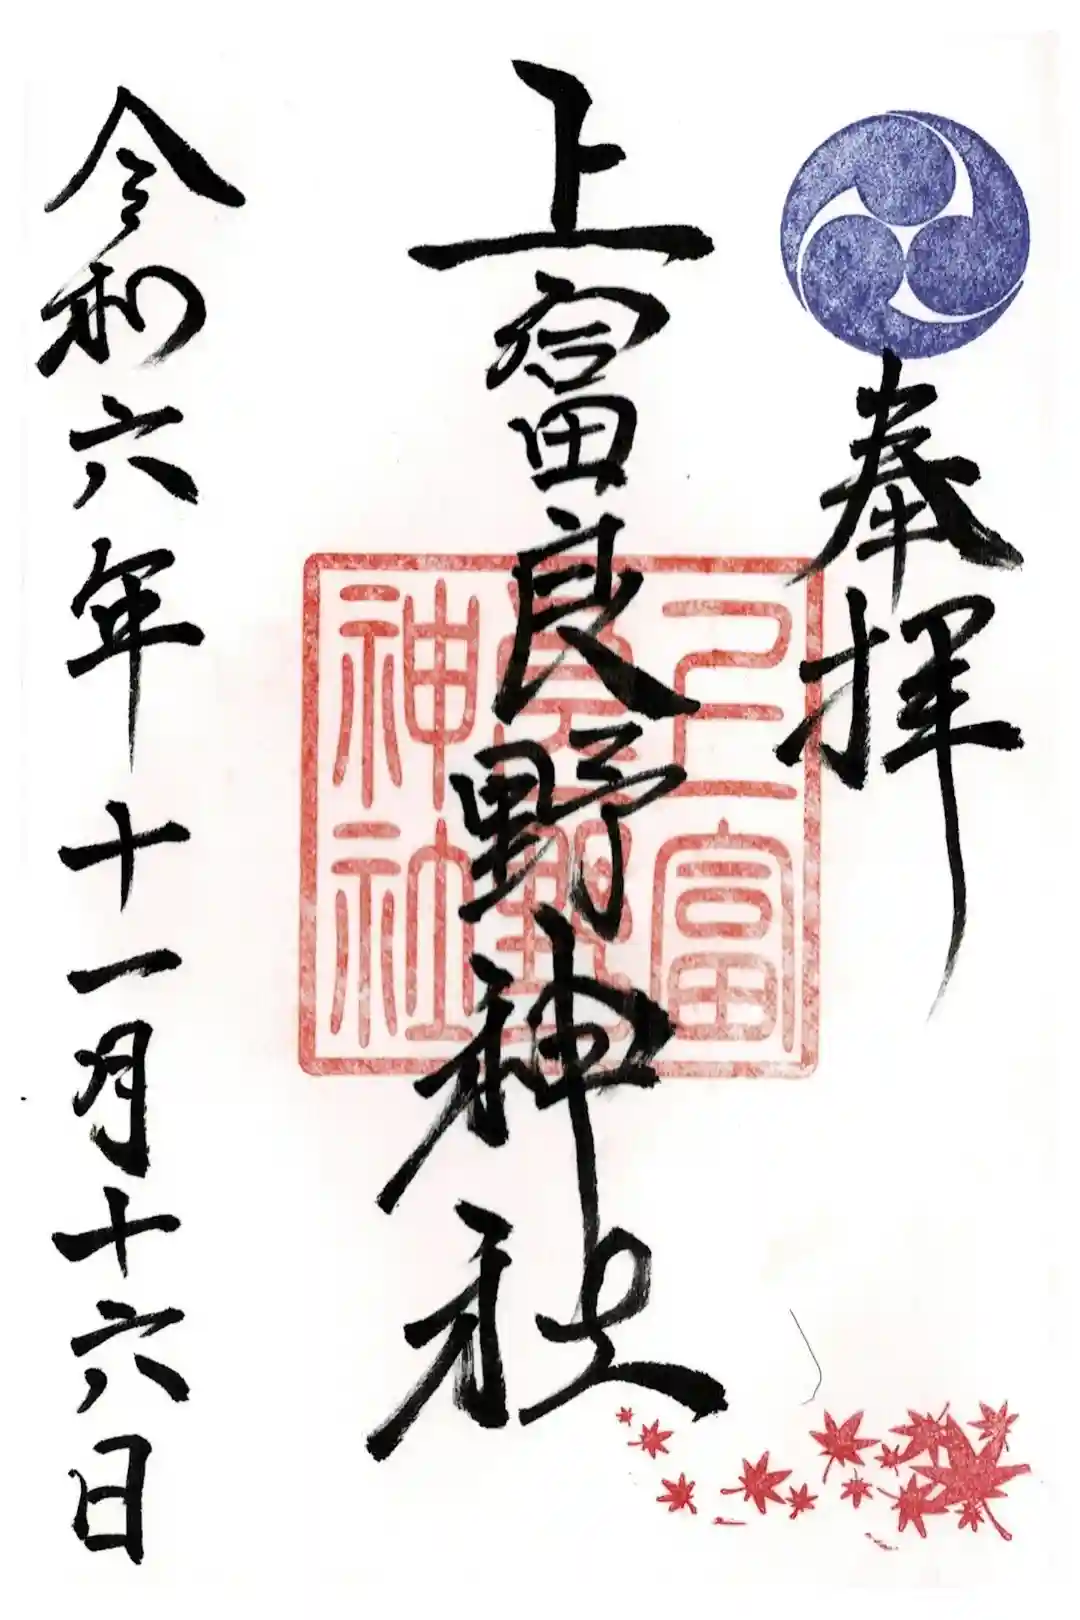 奉拝
上富良野神社
上富良野神社
令和六年十一月十六日